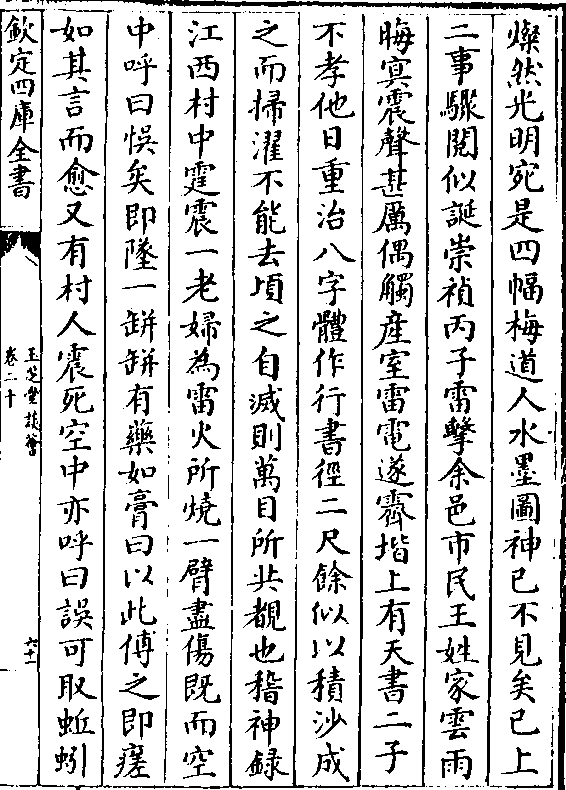 燦然光明宛是四幅梅道人水墨圖神已不見矣已上
二事驟閱似誕崇禎丙子雷擊余邑市民王姓家雲雨
晦寘震聲甚厲偶觸産室雷電遂霽堦上有天書二子
不孝他日重治八字體作行書徑二尺餘似以積沙成
之而掃濯不能去頃之自滅則萬目所共覩也稽神録
江西村中霆震一老婦為雷火所燒一臂盡傷既而空
中呼曰悞矣即墜一缾缾有藥如膏曰以此傅之即瘥
如其言而愈又有村人震死空中亦呼曰誤可取蚯蚓
欽定四庫全書
玉芝堂談薈
卷二十
六十二